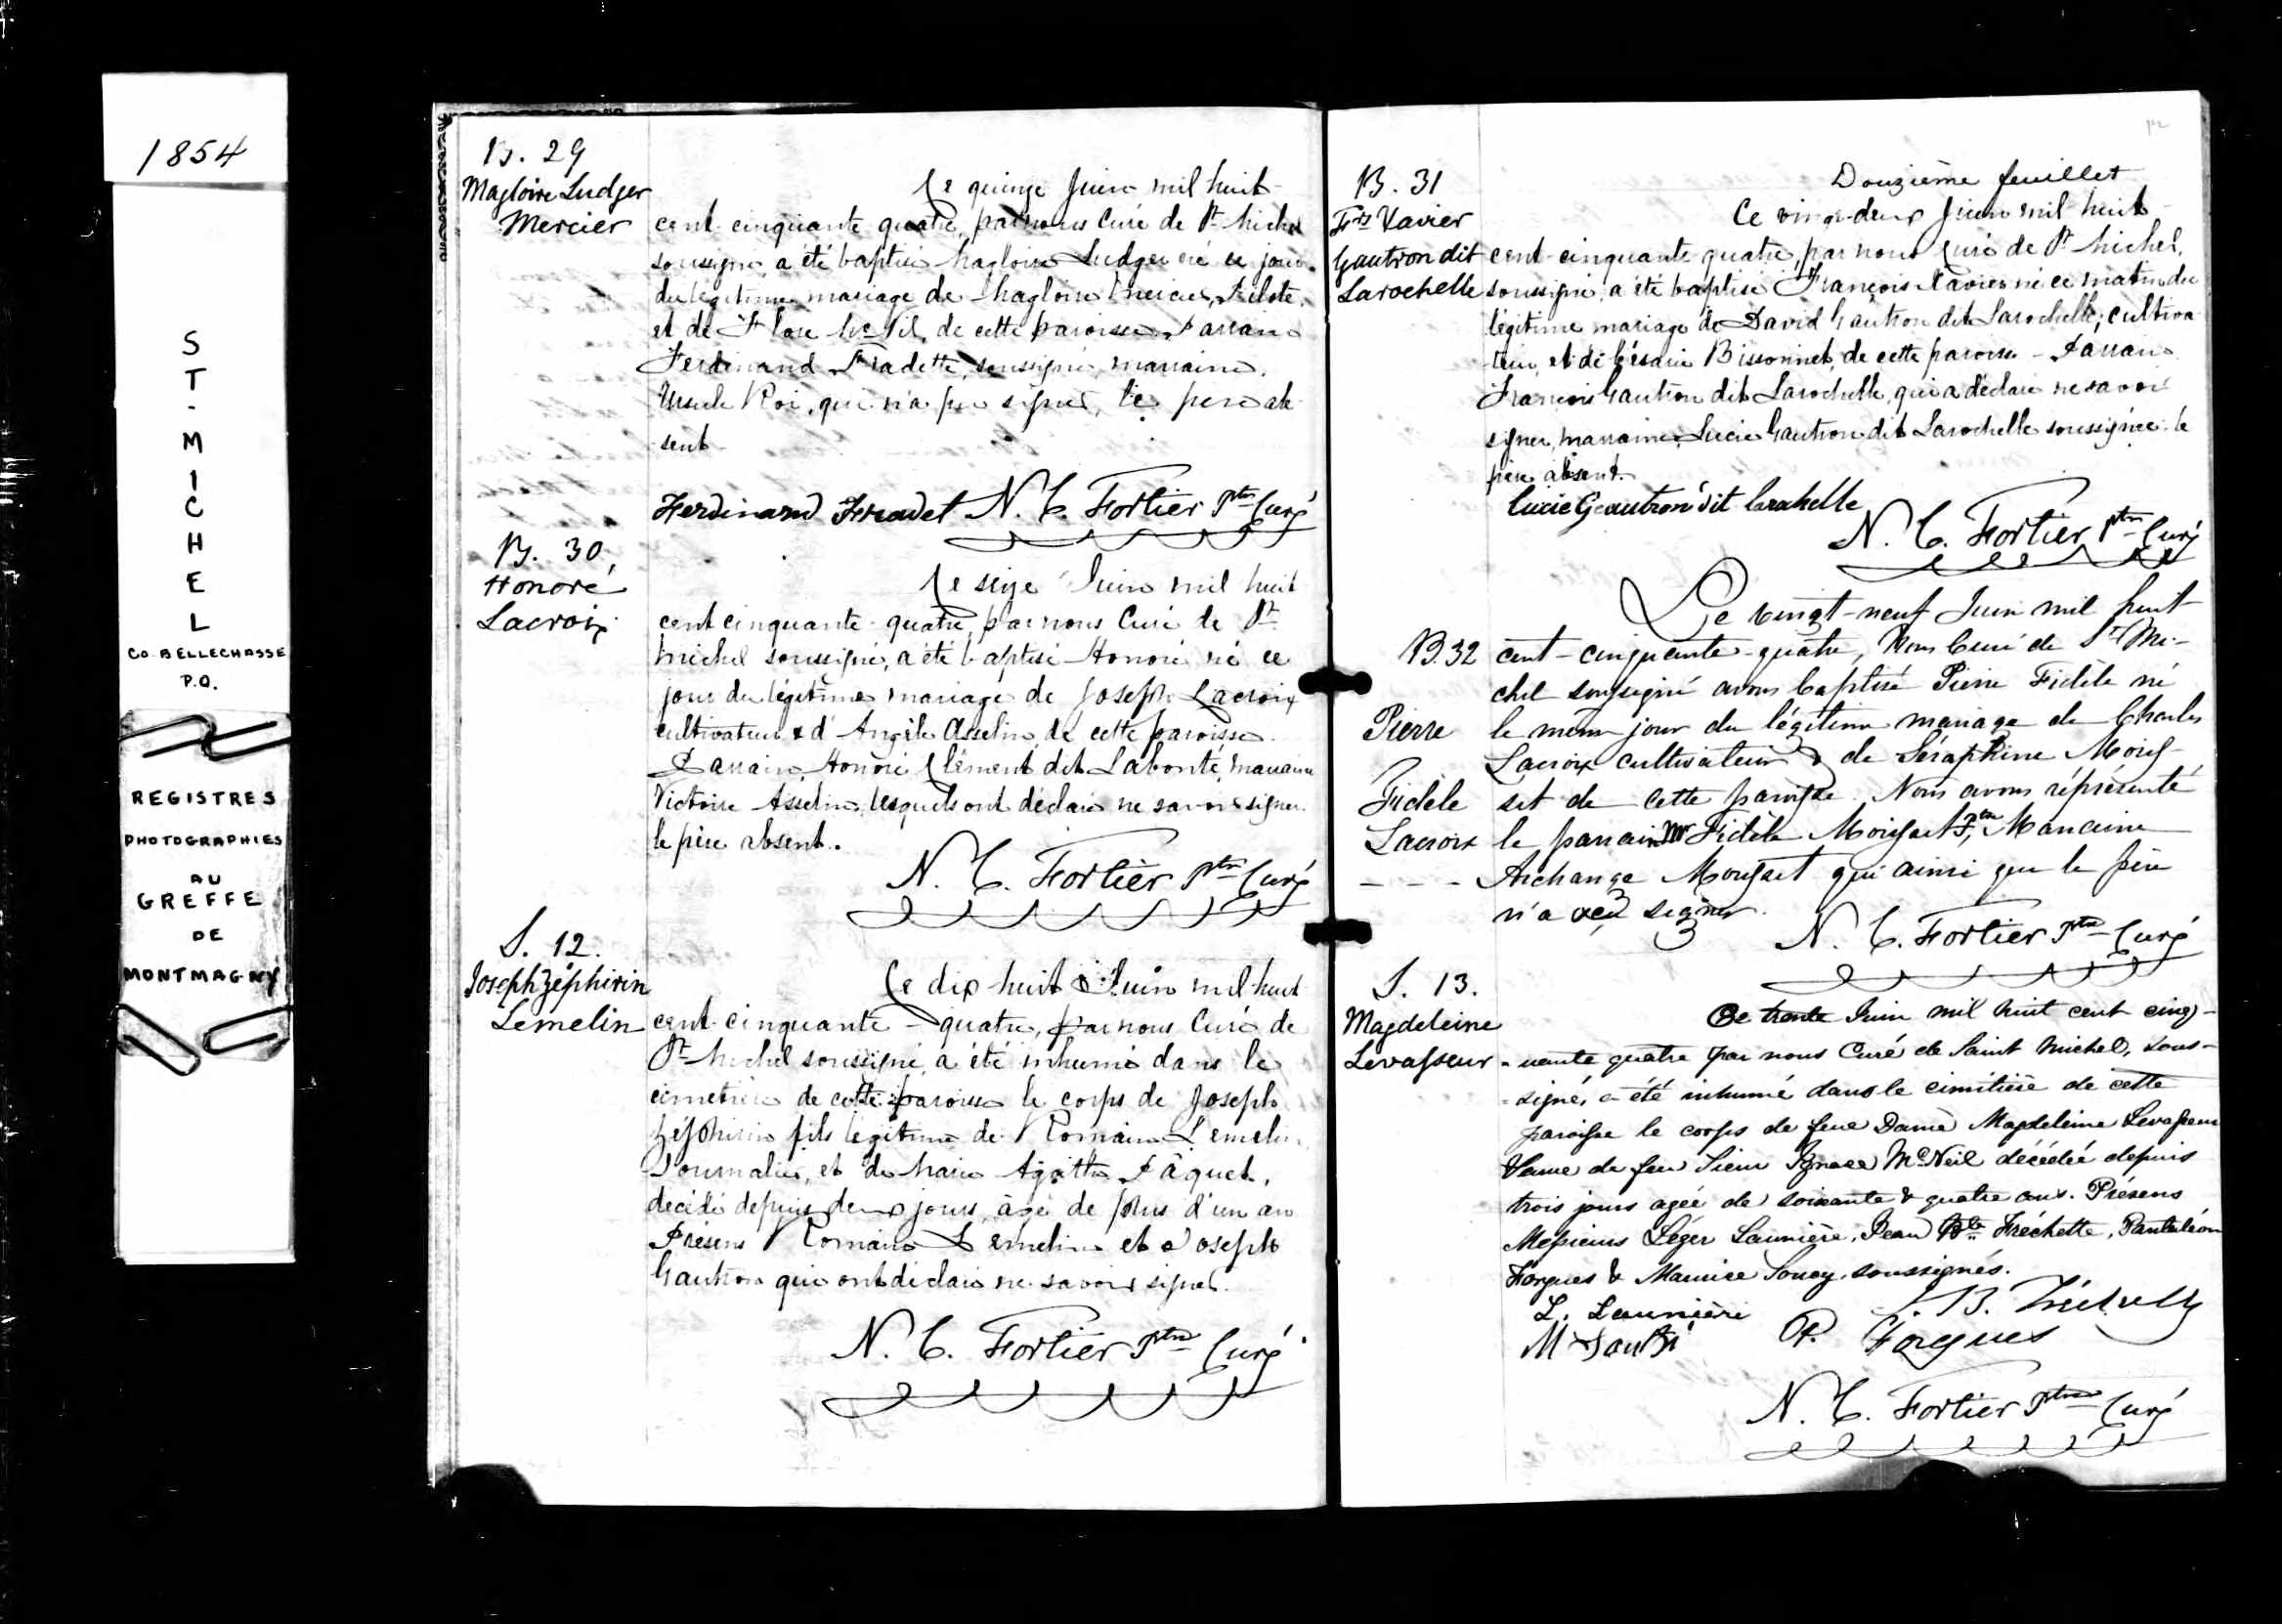 1854
ST-MICHEL
CO. BELLECHASSE
P.Q.
REGISTRES
PHOTOGRAPHIES
AU
GREFFE
DE
MONTMAGNY
B. 29
Magloire Ludger
Mercier
Le quinze Juin mil huit
cent cinquante quatre, par nous Curé de St Michel
soussigné, a été baptisé Magloire Ludger né ce jour
du légitime mariage de Magloire Mercier, Pilote,
et de Flore Mc Neil, de cette paroisse. Parrain
Ferdinand Fradette, soussigné, marraine,
Ursule Roi, qui n'a pu signer, le père ab
sent
Ferdinand Fradet N. C. Fortier Ptre Curé
B. 30,
Honoré
Lacroix
Le seize Juin mil huit
cent cinquante-quatre, par nous Curé de St
Michel soussigné, a été baptisé Honoré né ce
jour du légitime mariage de Joseph Lacroix
cultivateur & d'Angèle Asselin, de cette paroisse
Parrain, Honoré Clément dit Labonté, marraine
Victoire Asselin, lesquels ont déclaré ne savoir signer
le père absent.
N. C. Fortier Ptre Curé
S. 12.
Joseph Zéphirin
Lemelin
Le dix huit Juin mil huit
cent cinquante-quatre, par nous Curé de
St Michel soussigné, a été inhumé dans le
cimetière de cette paroisse le corps de Joseph
Zéphirin fils légitime de Romain Lemelin
Journalier, et de Marie Agathe Pâquet,
décédé depuis deux jours, âgé de plus d'un an
Présens Romain Lemelin et Joseph
Gautron qui ont déclaré ne savoir signer.
N. C. Fortier Ptre Curé
Douzième feuillet
B. 31
Frs Xavier
Gautron dit
Larochelle
Ce vingt-deux Juin mil huit
cent-cinquante quatre, par nous Curé de St Michel,
soussigné, a été baptisé François Xavier né ce matin du
légitime mariage de David Gautron dit Larochelle, cultiva
teur, et de Césarie Bissonnet, de cette paroisse - Parrain
François Gautron dit Larochelle, qui a déclaré ne savoir
signer, marraine, Lucie Gautron dit Larochelle soussignée. le
père absent.
Lucie Geautron dit Larochelle
N. C. Fortier Ptre Curé
B. 32
Pierre
Fidèle
Lacroix
Le vingt-neuf Juin mil huit
cent-cinquante-quatre, Nous Curé de St Mi-
chel soussigné avons baptisé Pierre Fidèle né
le même jour du légitime mariage de Charles
Lacroix cultivateur & de Séraphine Moris-
set de cette paroisse. Nous avons réprésenté
le parrain Mr Fidèle Morisset, Ptre, Marraine
Archange Morisset qui ainsi que le père
n'a seu signer.
N. C. Fortier Ptre Curé
S. 13.
Magdeleine
Levasseur
Ce trente Juin mil huit cent cinq-
uante quatre par nous Curé de Saint Michel, sous-
signé, a été inhumé dans le cimitière de cette
paroisse le corps de feue Dame Magdeleine Levasseur
Veuve de feu Sieur Ignace Mc Neil décédée depuis
trois jours agée de soixante & quatre ans. Présens
Messieurs Léger Launière, Jean Bte Fréchette, Pantaléon
Forgues & Maurice Soucy, soussignés.
L. Launière
P. Forgues
N. C. Fortier Ptre Curé